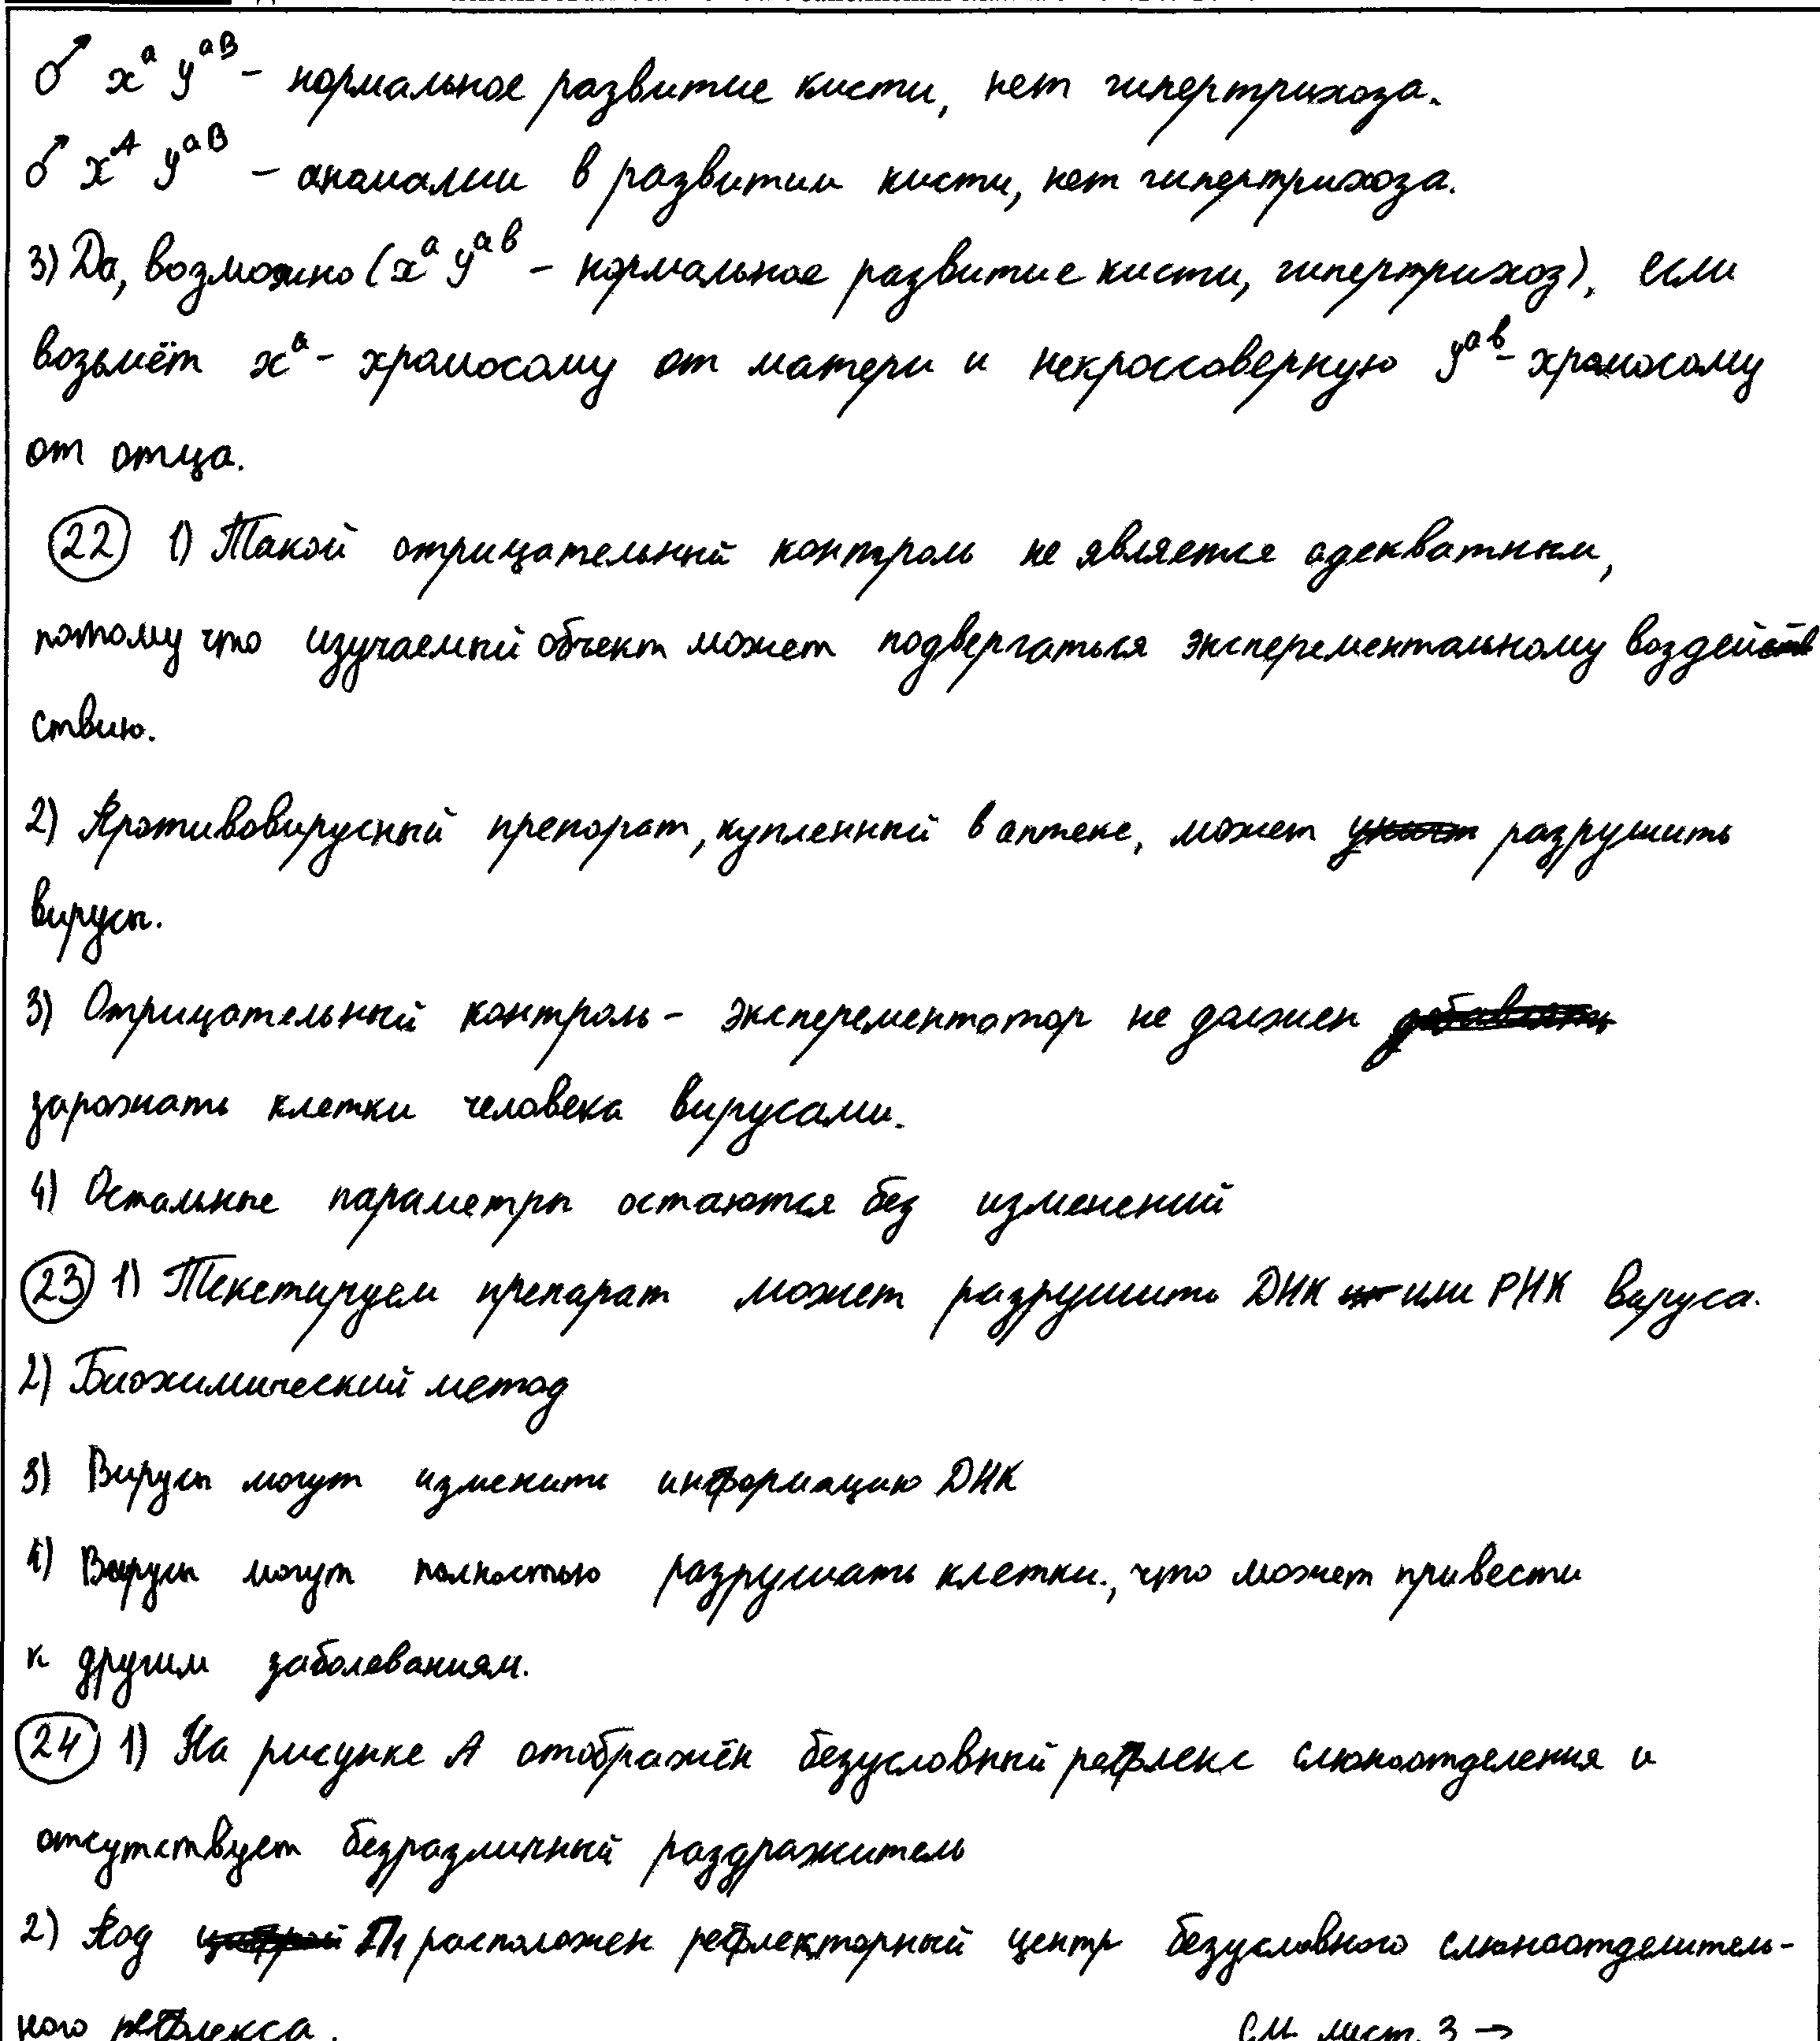 ♂ xᵃ yᵃᴮ – нормальное развитие кисти, нет гипертрихоза.
♂ xᴬ yᵃᴮ – аномалии в развитии кисти, нет гипертрихоза.
3) Да, возможно (xᵃ yᵃᵇ – нормальное развитие кисти, гипертрихоз), если
возьмёт xᵃ - хромосому от матери и некроссоверную yᵃᵇ - хромосому
от отца.
22 1) Такой отрицательный контроль не является адекватным,
потому что изучаемый объект может подвергаться эксперементальному воздей
ствию.
2) Противовирусный препорат, купленный в аптеке, может разрушить
вирусы.
3) Отрицательный контроль – эксперементатор не должен
заражать клетки человека вирусами.
4) Остальные параметры остаются без изменений
23 1) Текстируем препарат может разрушить ДНК или РНК вируса.
2) Биохимический метод
3) Вирусы могут изменить информацию ДНК
4) Вирусы могут полностью разрушать клетки., что может привести
к другим заболеваниям.
24 1) На рисунке А отображён безусловный рефлекс слюноотделения и
отсутствует безразличный раздражитель
2) Под П1 расположен рефлекторный центр безусловного слюноотделитель-
ного рефлекса.
См. лист. 3 →